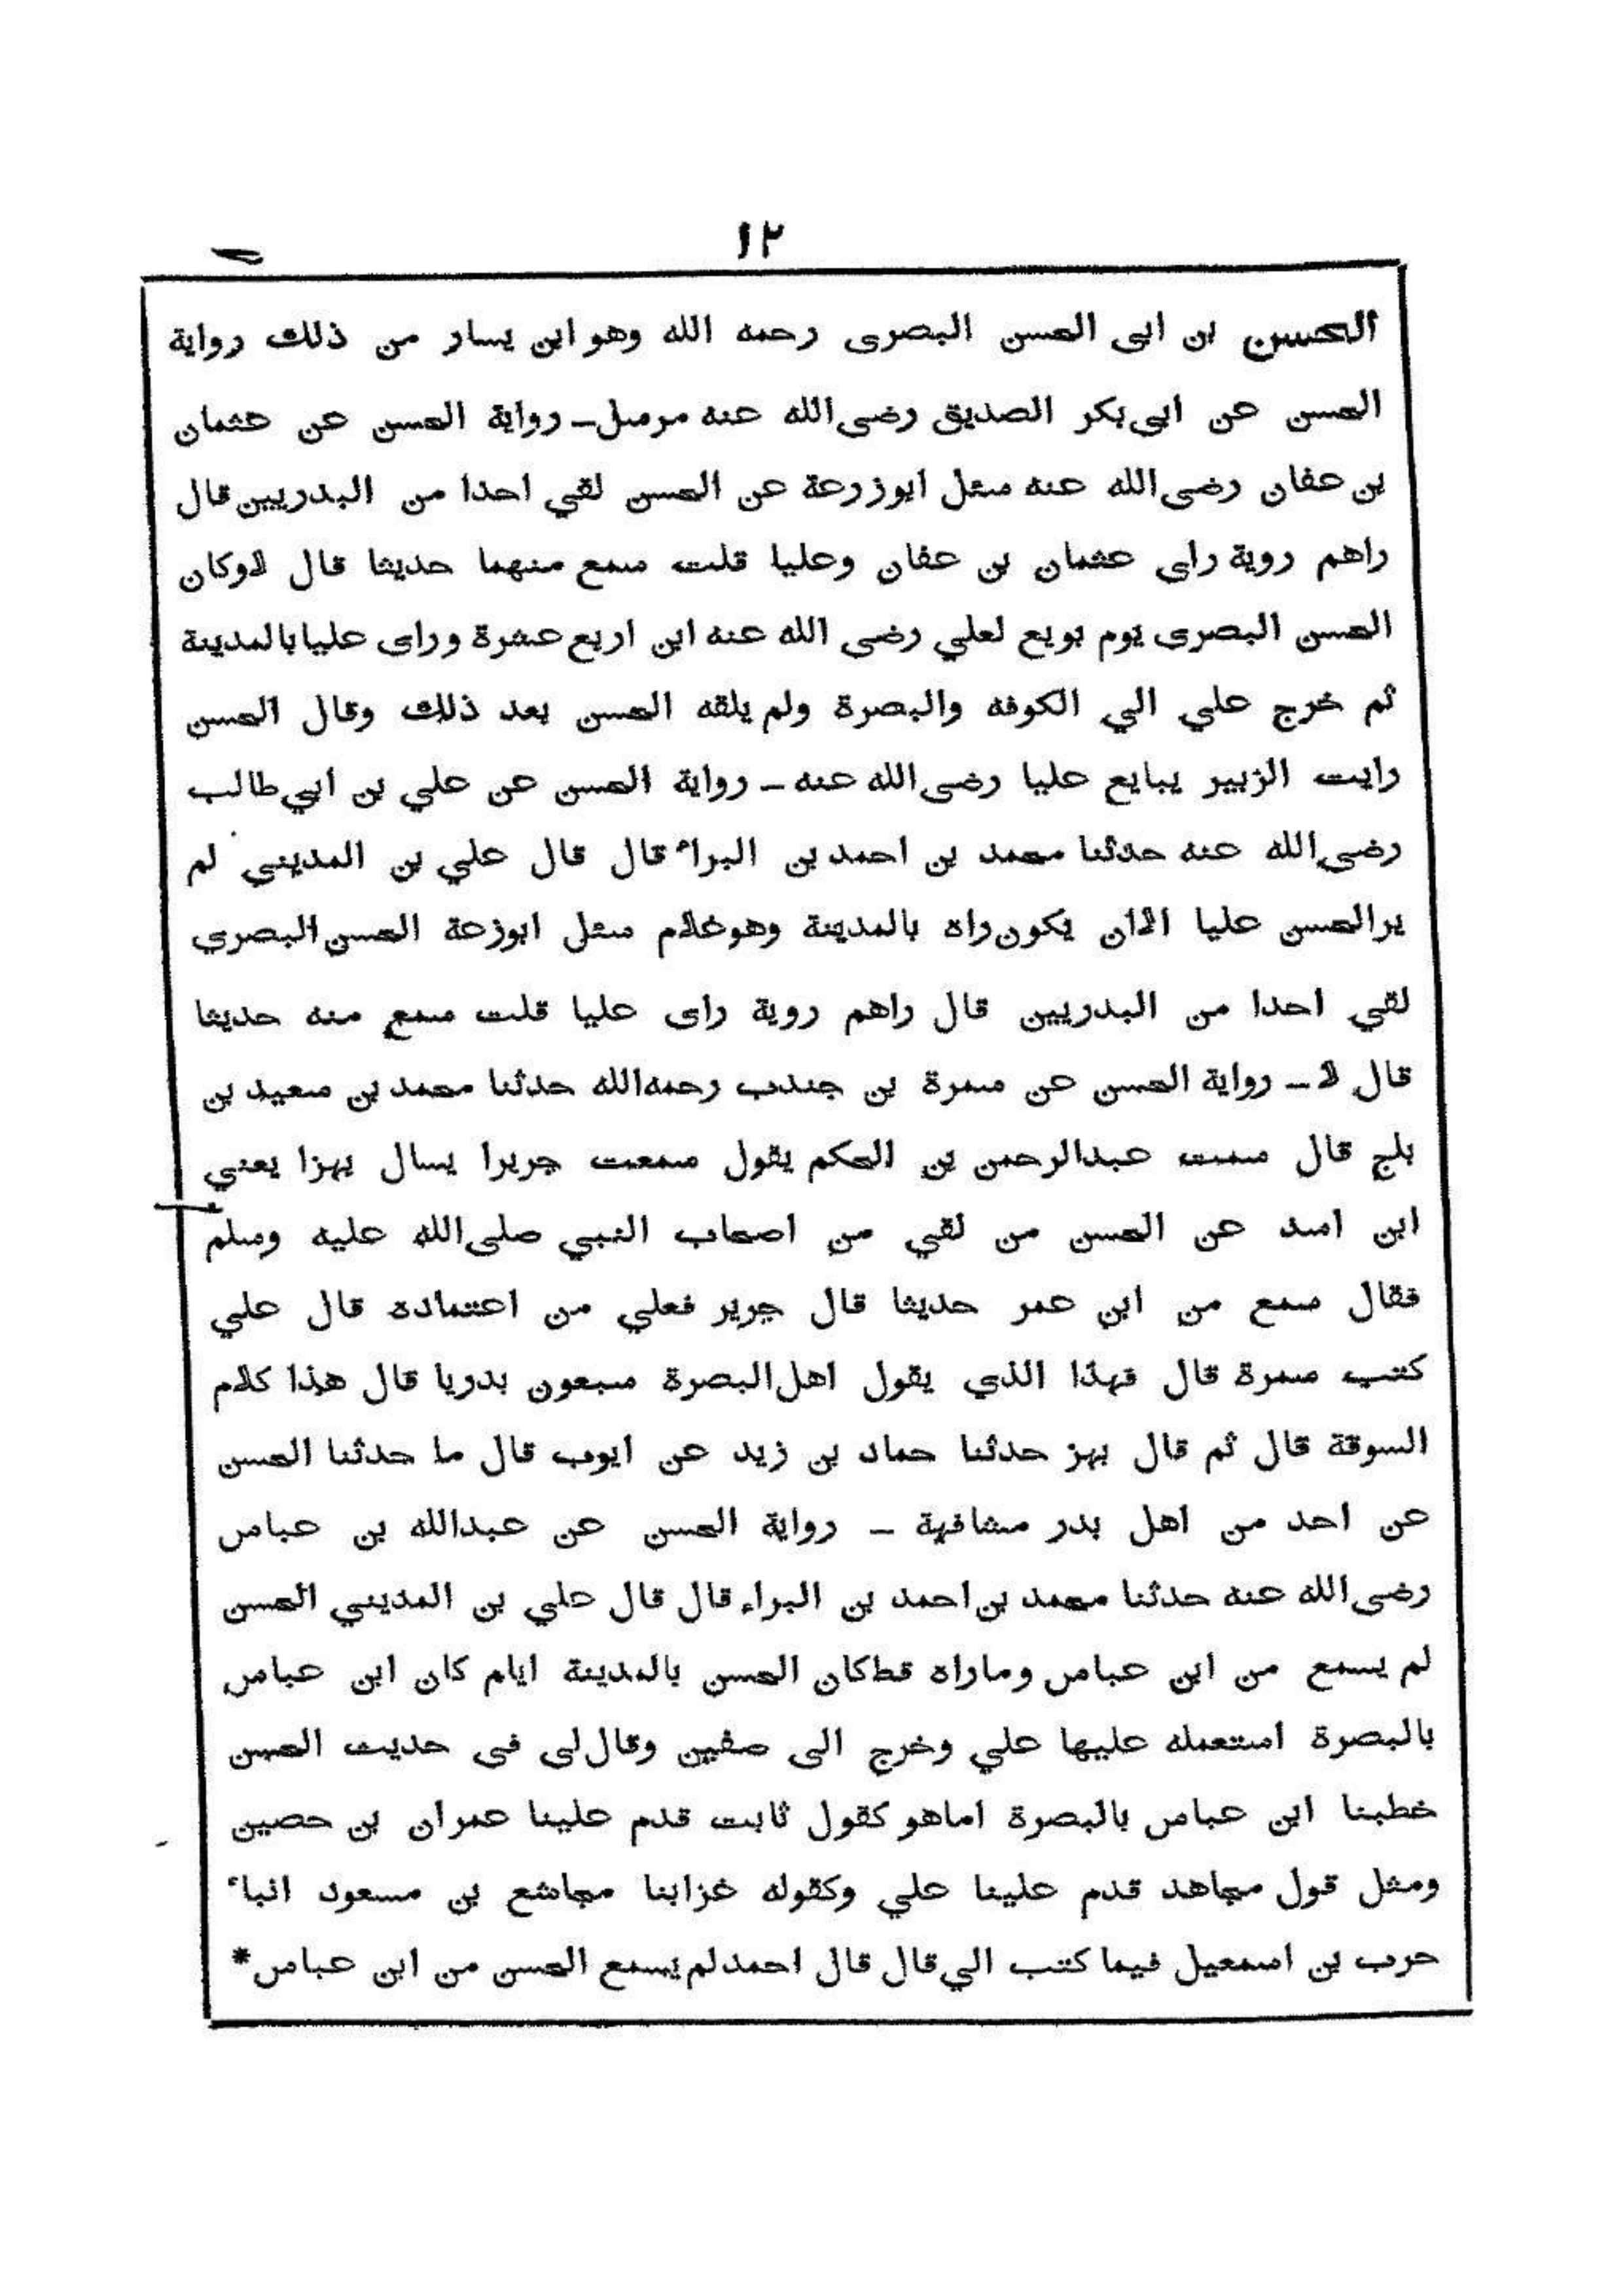 ١٢
الحسن بن ابى الحسن البصرى رحمه الله وهو ابن يسار من ذلك رواية
الحسن عن ابى بكر الصديق رضى الله عنه مرسل ـ رواية الحسن عن عثمان
بن عفان رضى الله عنه سئل ابوزرعة عن الحسن لقي احدا من البدريين قال
راهم روية راى عثمان بن عفان وعليا قلت سمع منهما حديثا قال لاوكان
الحسن البصرى يوم بويع لعلي رضى الله عنه ابن اربع عشرة وراى عليا بالمدينة
ثم خرج علي الي الكوفه والبصرة ولم يلقه الحسن بعد ذلك وقال الحسن
رايت الزبير يبايع عليا رضى الله عنه ـ رواية الحسن عن علي بن ابي طالب
رضى الله عنه حدثنا محمد بن احمد بن البراء قال قال علي بن المديني لم
يرالحسن عليا الاان يكون راه بالمدينة وهوغلام سئل ابوزعة الحسن البصري
لقي احدا من البدريين قال راهم روية راى عليا قلت سمع منه حديثا
قال لا ـ رواية الحسن عن سمرة بن جندب رحمه الله حدثنا محمد بن سعيد بن
بلج قال سمت عبدالرحمن بن الحكم يقول سمعت جريرا يسال بهزا يعني
ابن اسد عن الحسن من لقي من اصحاب النبي صلى الله عليه وسلم
فقال سمع من ابن عمر حديثا قال جرير فعلي من اعتماده قال علي
كتب سمرة قال فهذا الذي يقول اهل البصرة سبعون بدريا قال هذا كلام
السوقة قال ثم قال بهز حدثنا حماد بن زيد عن ايوب قال ما حدثنا الحسن
عن احد من اهل بدر مشافهة ـ رواية الحسن عن عبدالله بن عباس
رضى الله عنه حدثنا محمد بن احمد بن البراء قال قال علي بن المديني الحسن
لم يسمع من ابن عباس وماراه قط كان الحسن بالمدينة ايام كان ابن عباس
بالبصرة استعمله عليها علي وخرج الى صفين وقال لى فى حديث الحسن
خطبنا ابن عباس بالبصرة اماهو كقول ثابت قدم علينا عمران بن حصين
ومثل قول مجاهد قدم علينا علي وكقوله غزابنا مجاشع بن مسعود انباء
حرب بن اسمعيل فيما كتب الي قال قال احمد لم يسمع الحسن من ابن عباس*